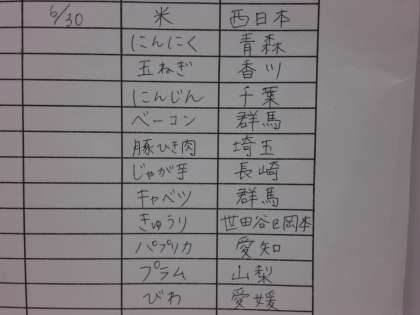 6/30 米 西日本
にんにく 青森
玉ねぎ 香川
にんじん 千葉
ベーコン 群馬
豚ひき肉 埼玉
じゃが芋 長崎
キャベツ 群馬
きゅうり 世田谷区岡本
パプリカ 愛知
プラム 山梨
びわ 愛媛